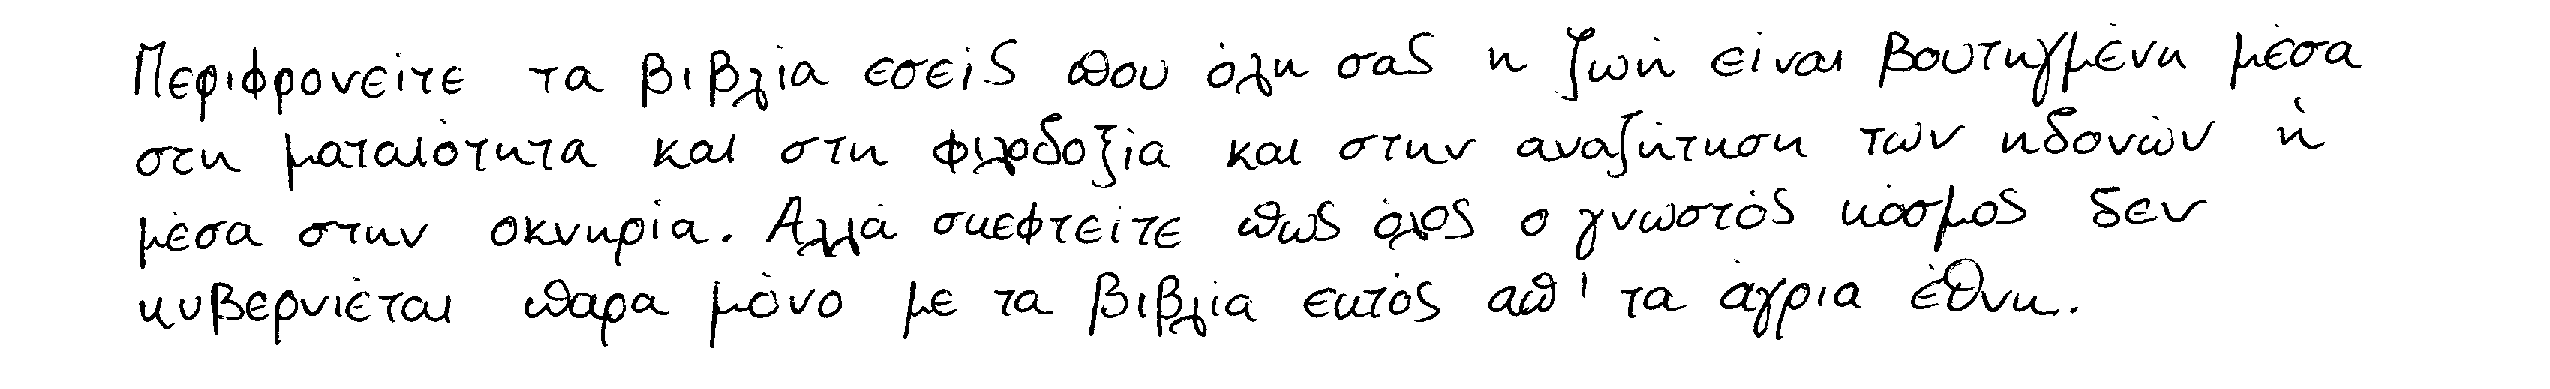 Περιφρονείτε τα βιβλία εσείς που όλη σας η ζωή είναι βουτηγμένη μέσα
στη ματαιότητα και στη φιλοδοξία και στην αναζήτηση των ηδονών ή
μέσα στην οκνηρία. Αλλά σκεφτείτε πως όλος ο γνωστός κόσμος δεν
κυβερνιέται παρα μόνο με τα βιβλία εκτός απ' τα άγρια έθνη.